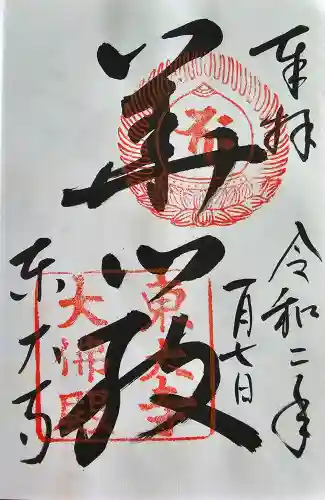 奉拝
令和二年
一月七日
華厳
東大寺
東大寺
大佛殿